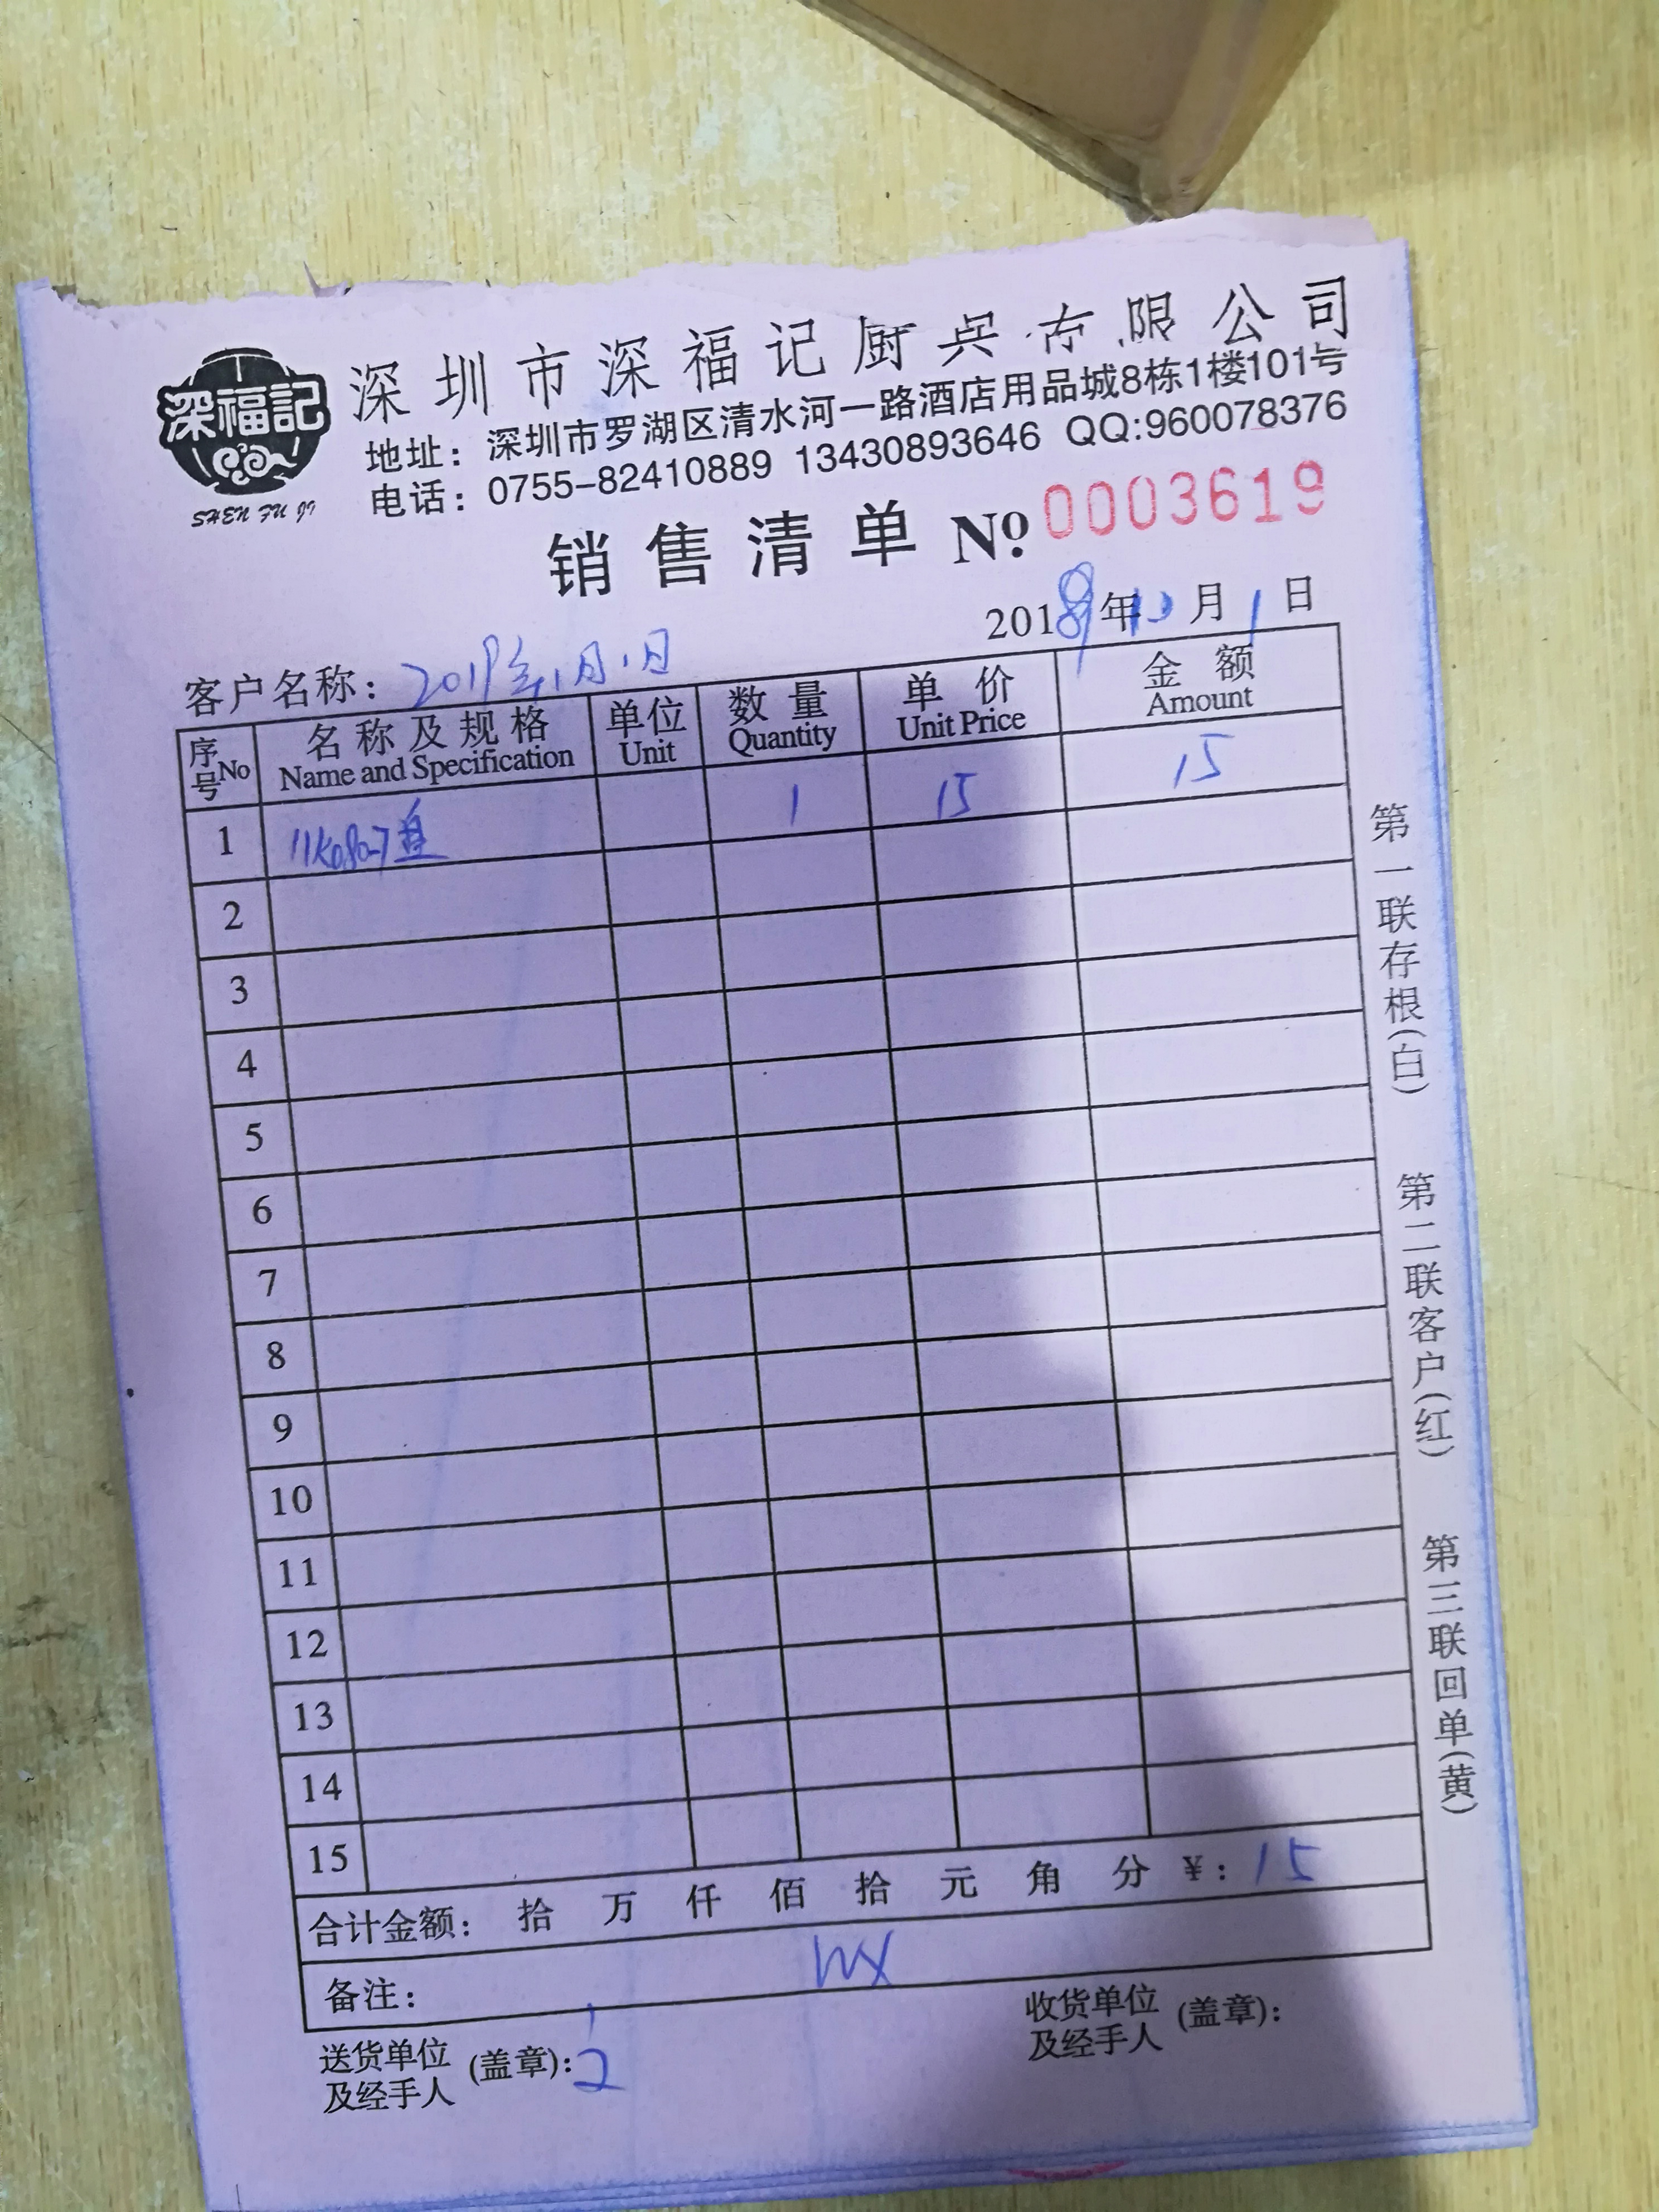 深福記
SHEN FU JI
深圳市深福记厨具有限公司
地址：深圳市罗湖区清水河一路酒店用品城8栋1楼101号
电话：0755-82410889 13430893646 QQ:960078376
销售清单 No 0003619
2018年 月1日
客户名称：2019年1月1日
序号No 名称及规格 Name and Specification 单位 Unit 数量 Quantity 单价 Unit Price 金额 Amount
1 1 15 15
2
3
4
5
6
7
8
9
10
11
12
13
14
15
合计金额： 拾 万 仟 佰 拾 元 角 分 ¥：15
备注： WX
送货单位及经手人(盖章)：
收货单位及经手人(盖章)：
第一联存根(白)
第二联客户(红)
第三联回单(黄)